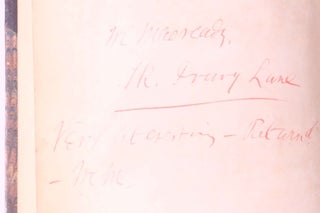 W. Macready.
Th. Drury Lane
Very interesting – Returned